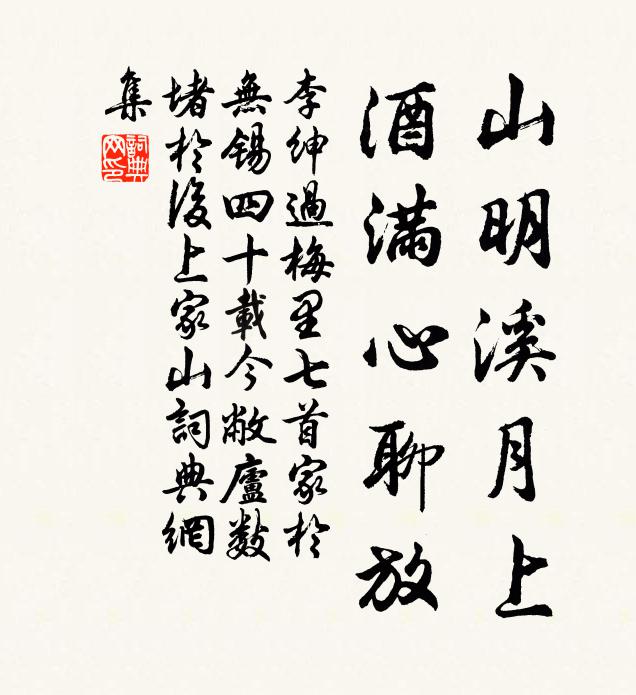 山明溪月上
酒滿心聊放
李紳過梅里七首家於
無錫四十載今敝廬數
堵於後上家山詞典網
集
詞典
网印